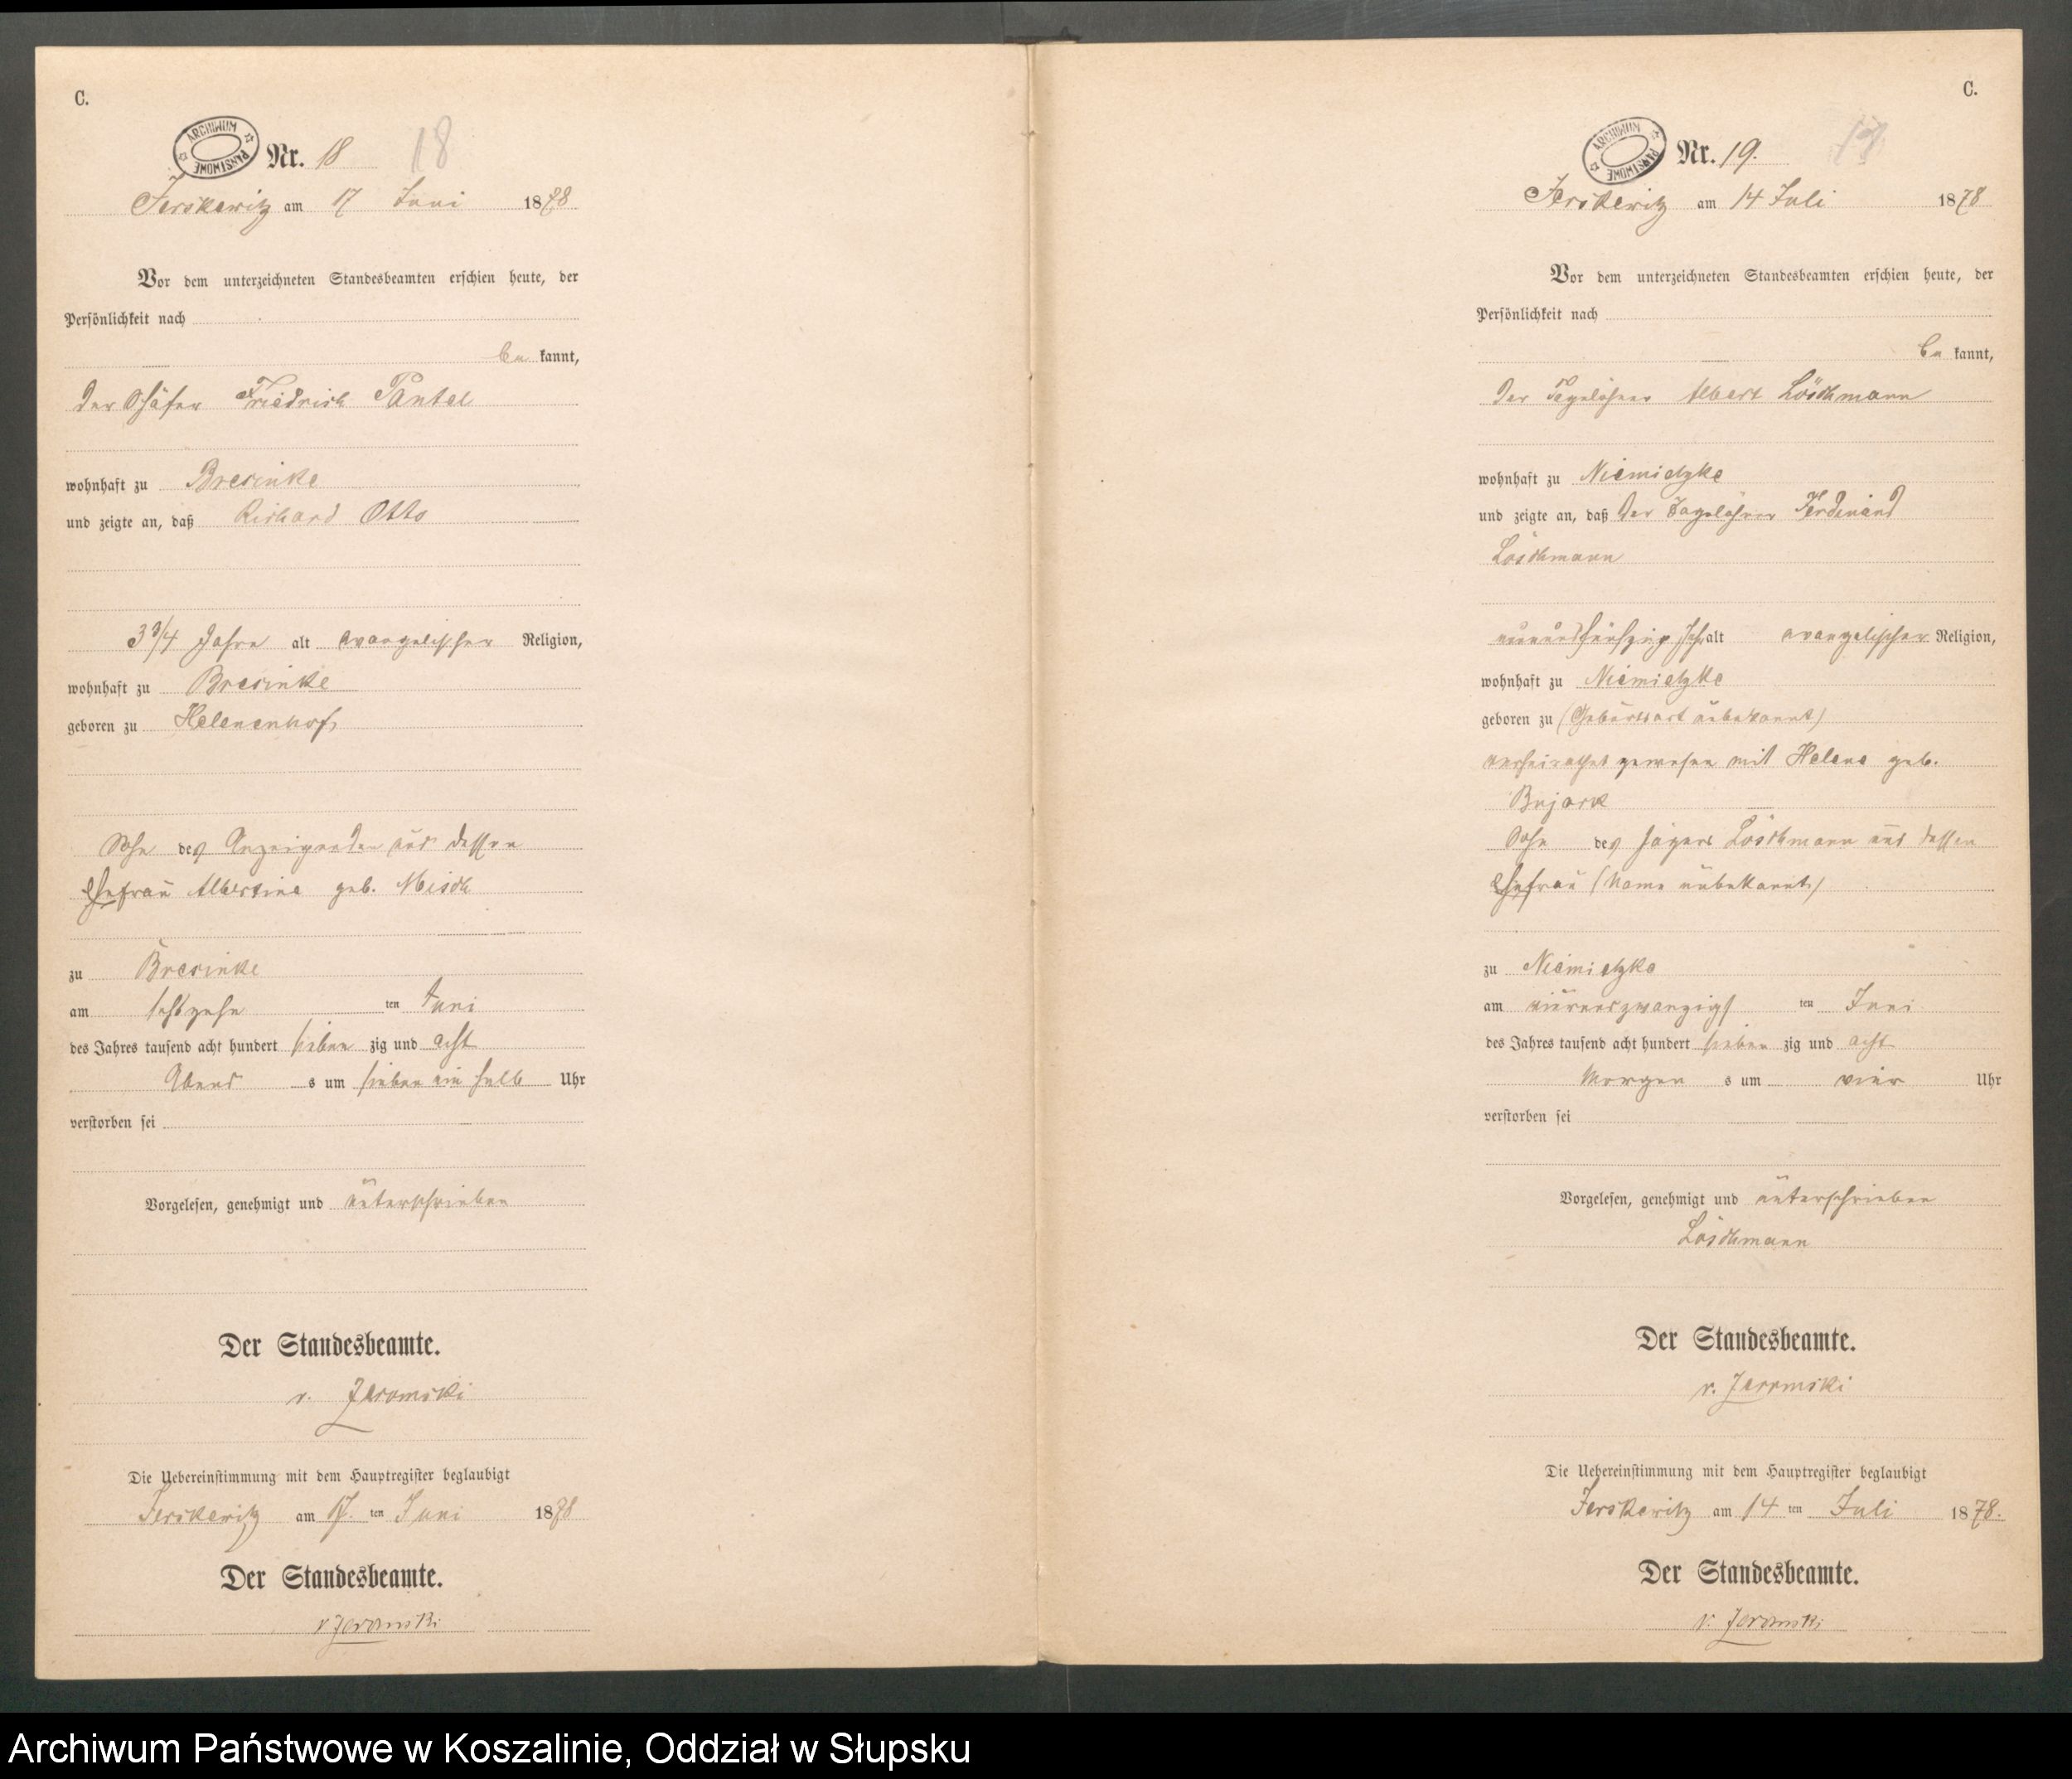 C.
ARCHIWUM PAŃSTWOWE
Nr. 18 18
Jerskewitz am 17 Juni 1878
Vor dem unterzeichneten Standesbeamten erschien heute, der
Persönlichkeit nach
be kannt,
der Schäfer Friedrich Pantel
wohnhaft zu Bresinke
und zeigte an, daß Richard Otto
3 3/4 Jahre alt evangelischer Religion,
wohnhaft zu Bresinke
geboren zu Helenenhof,
Sohn des Anzeigenden und dessen
Ehefrau Albertine geb. Misch
zu Bresinke
am ten Juni
des Jahres tausend acht hundert sieben zig und acht
Abend s um sieben ein halb Uhr
verstorben sei
Vorgelesen, genehmigt und unterschrieben
Der Standesbeamte.
v. Jeromski
Die Uebereinstimmung mit dem Hauptregister beglaubigt
Jerskewitz am 17. ten Juni 1878
Der Standesbeamte.
v Jeromski
C.
ARCHIWUM PAŃSTWOWE
Nr. 19.
Jerskewitz am 14 Juli 1878
Vor dem unterzeichneten Standesbeamten erschien heute, der
Persönlichkeit nach
be kannt,
der Tagelöhner Albert Löschmann
wohnhaft zu Niemietzke
und zeigte an, daß der Tagelöhner Ferdinand
Löschmann
neunundfünfzig Jahr alt evangelischer Religion,
wohnhaft zu Niemietzke
geboren zu (Geburtsort unbekannt)
verheirathet gewesen mit Helene geb.
Bujark
Sohn des Jägers Löschmann und dessen
Ehefrau (Name unbekannt)
zu Niemietzke
am vierundzwanzigst ten Juni
des Jahres tausend acht hundert sieben zig und acht
Morgen s um vier Uhr
verstorben sei
Vorgelesen, genehmigt und unterschrieben
Löschmann
Der Standesbeamte.
v. Jeromski
Die Uebereinstimmung mit dem Hauptregister beglaubigt
Jerskewitz am 14 ten Juli 1878.
Der Standesbeamte.
v. Jeromski
Archiwum Państwowe w Koszalinie, Oddział w Słupsku